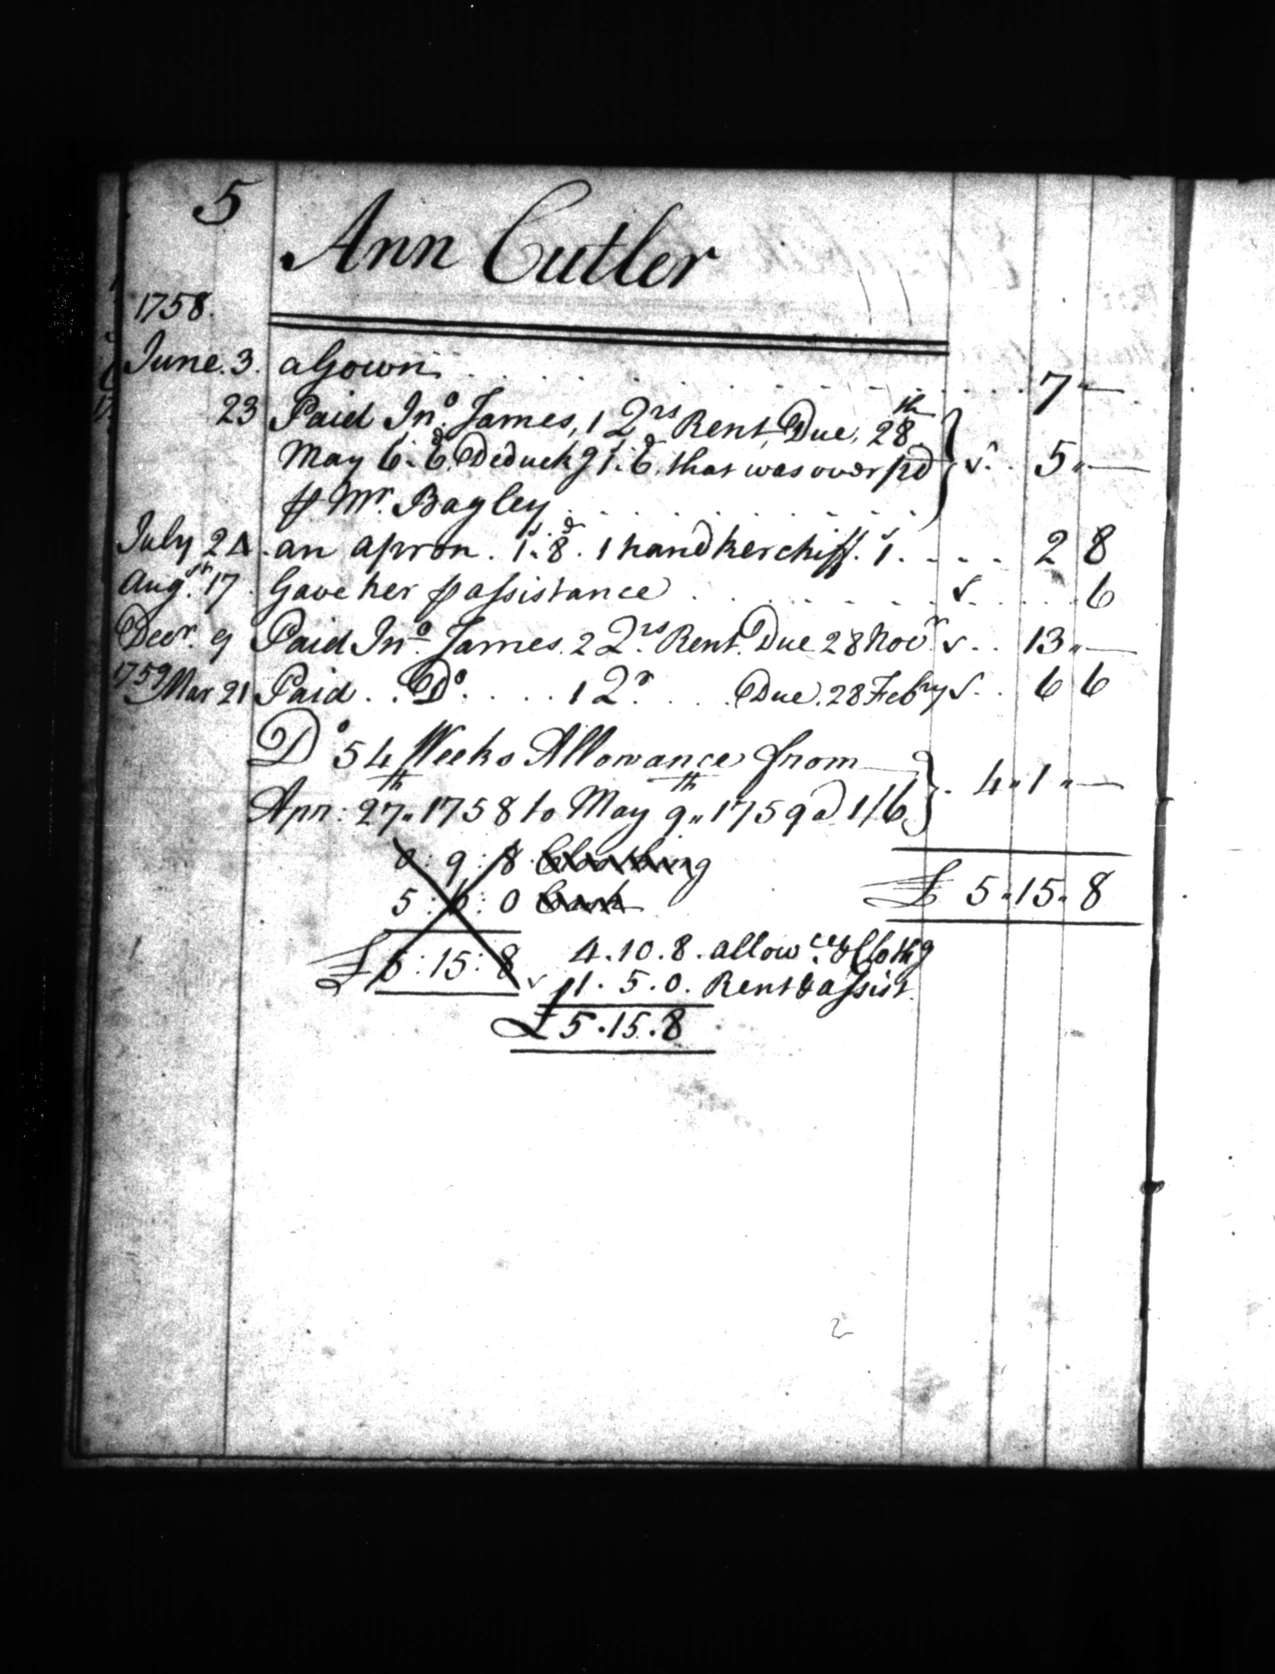 5
Ann Cutler
1758.
June. 3. a Gown . . . . . . . . . . 7 " —
23 Paid Jno. James, 1 Qrs Rent, Due, 28th
May 6s. 6d. Deductg 1s. 6d. that was over pd } ✓. . 5 " —
₱ Mr. Bagley . . . . . . . . .
July 24. an apron. 1s. 8d. 1 handkerchiff. 1s. . . . . 2 8
Augst. 17. Gave her ₱ assistance . . . . . . . ✓. . . . 6
Decr. 9 Paid Jno. James. 2 Qrs. Rent. Due 28 Novr. ✓. . 13 " —
1759 Mar 21 Paid . . Do. . . . 1 Qr. . . . Due. 28 Febry ✓. . 6 6
Do 54 Weeks Allowance from
Apr: 27th " 1758 to May 9th " 1759 @ 1/6 } . 4 " 1 " —
0 : 9 : 8 Cloathing
£ 5 " 15 " 8
5 : 6 : 0 Cash
£ 5 : 15 : 8
4 . 10 . 8 . allowce & Clothg
✓ 1 . 5 . 0 . Rent & assist.
£ 5 . 15 . 8
2